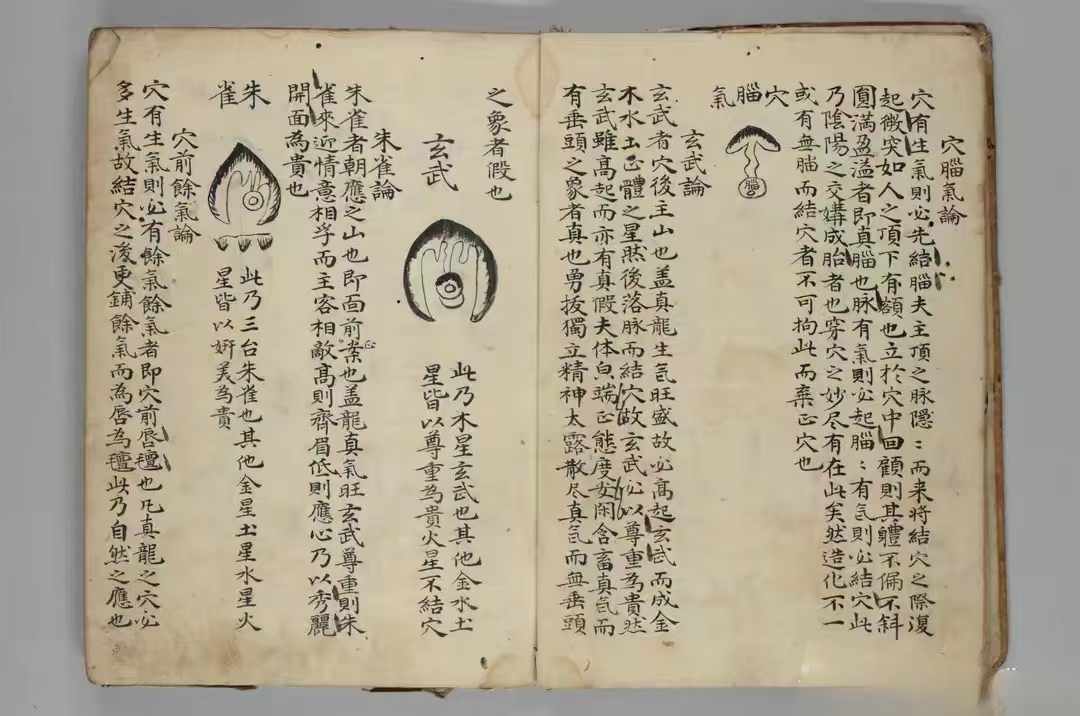 穴腦氣論
穴有生氣則必先結腦夫主頂之脉隱︰而来将結穴之際復
起微突如人之頂下有額也立於穴中回顧則其軆不偏不斜
圓滿盈溢者即真腦也脉有氣則必起腦︰有氣則必結穴此
乃陰陽之交媾成胎者也穿穴之妙尽有在此矣然造化不一
或有無腦而結穴者不可拘此而棄正穴也
穴腦氣
腦
玄武論
玄武者穴後主山也盖真龍生氣旺盛故必高起玄武而成金
木水土正體之星然後落脉而結穴故玄武必以尊重為貴然
玄武雖高起而亦有真假夫体自端正態度安閑含畜真氣而
有垂頭之象者真也勇拔獨立精神太露散尽真氣而無垂頭
之象者假也
玄武
此乃木星玄武也其他金水土
星皆以尊重為貴火星不結穴
朱雀論
朱雀者朝應之山也即面前案正也盖龍真氣旺玄武尊重則朱
雀來近情意相孚而主客相敵高則齊眉低則應心乃以秀麗
開面為貴也
朱雀
此乃三台朱雀也其他金星土星水星火
星皆以妍美為貴
穴前餘氣論
穴有生氣則必有餘氣餘氣者即穴前唇氊也凡真龍之穴必
多生氣故結穴之後更鋪餘氣而為唇為氊此乃自然之應也